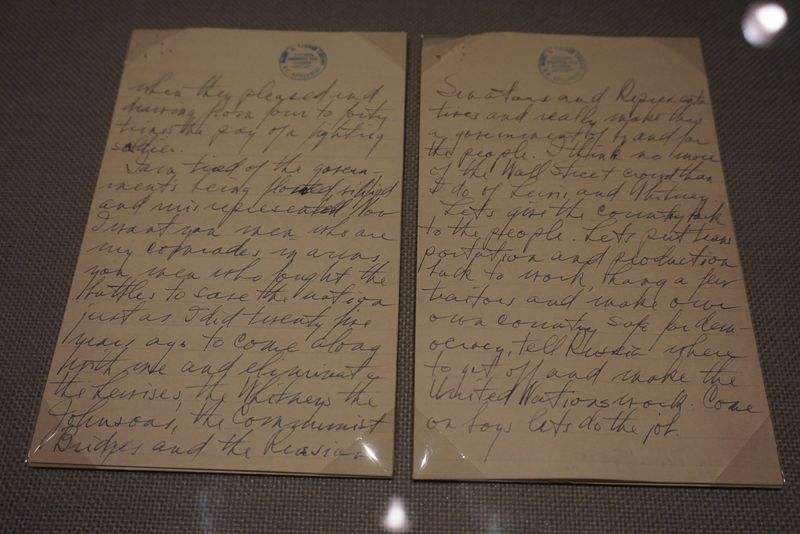 when they pleased and
drawing from four to forty
times the pay of a fighting
soldier.
I am tired of the govern-
ments being flouted, vilified
and misrepresented. Now
I want you men who are
my comrades in arms,
you men who fought the
battles to save the nation
just as I did twenty five
years ago to come along
with me and eliminate
the Lewises, the Whitneys the
Johnsons, the Communist
Bridges and the Russian
Senators and Representa
tives and really make this
a government of by and for
the people. I think no more
of the Wall Street crowd than
I do of Lewis and Whitney.
Lets give the country back
to the people. Lets put trans
portation and production
back to work, hang a few
traitors and make our
own country safe for dem-
ocracy, tell Russia where
to get off and make the
United Nations work. Come
on boys lets do the job.